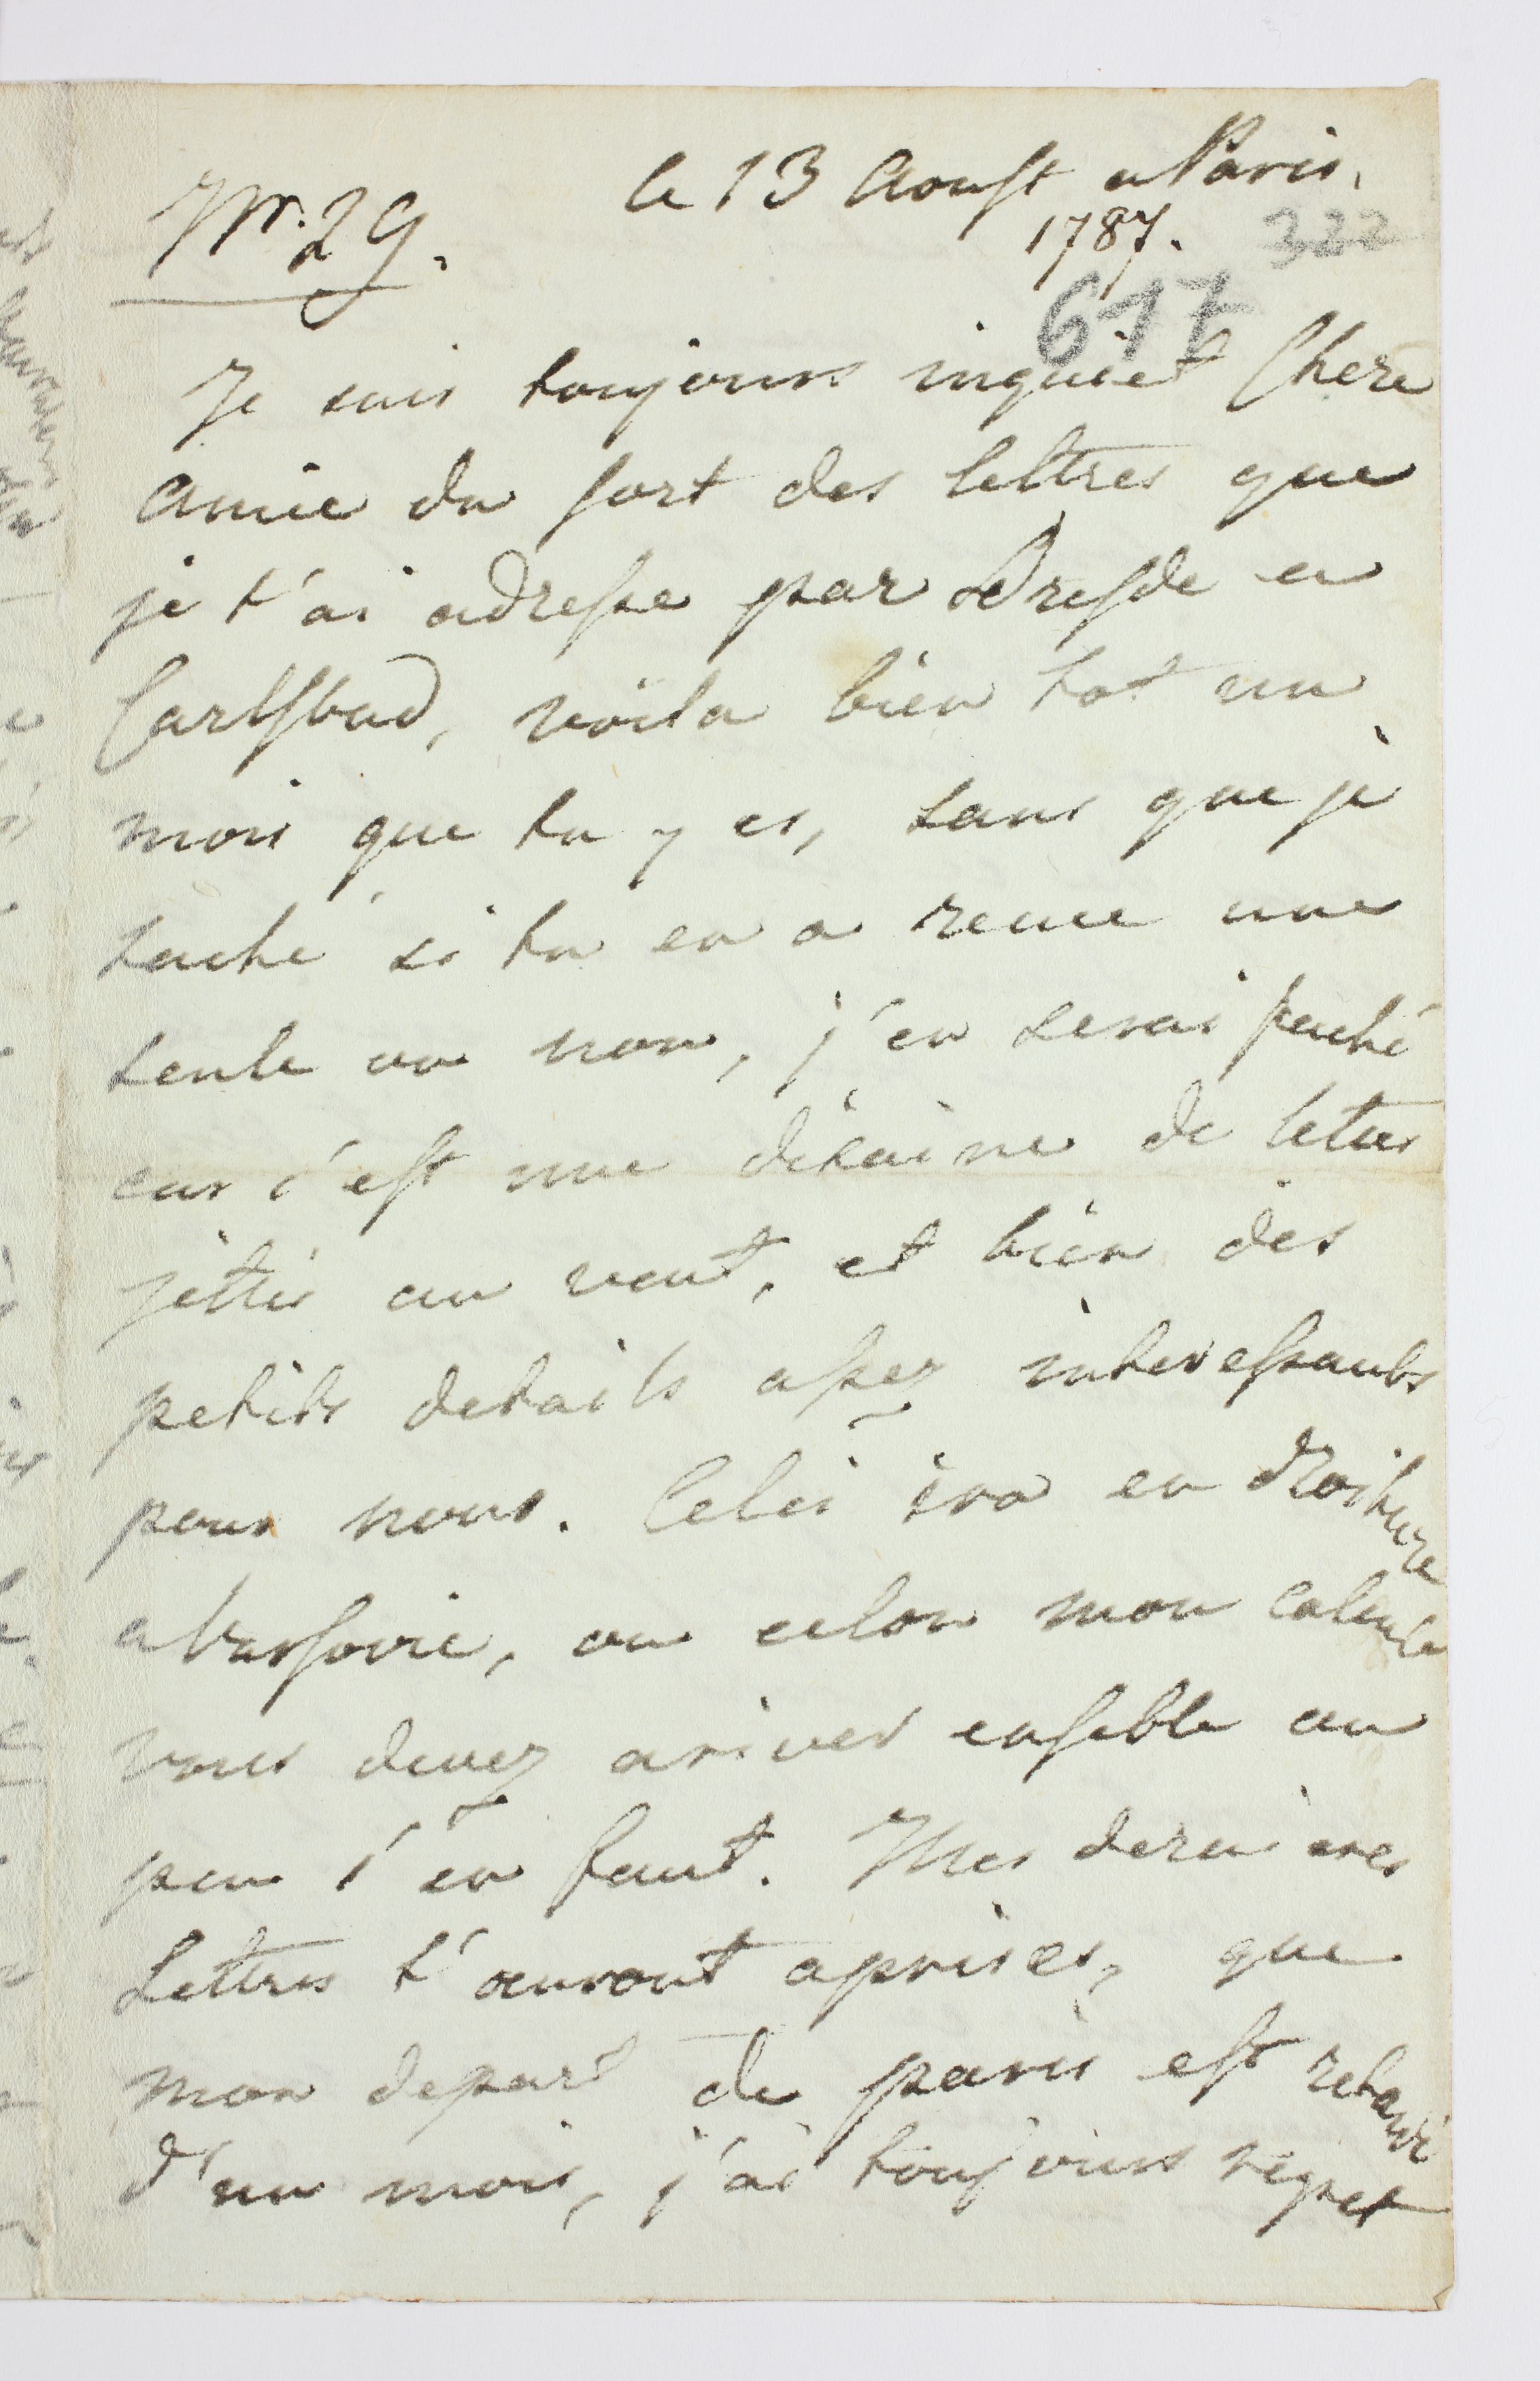 le 13 Aoust a Paris.
Nr. 29.
1787.
322
617
Je suis toujours inquiet Chere
Amie du sort des lettres que
je t'ai adresse par Dresde en
Carlsbad, voila bien tot un
mois que tu y es, sans que je
sache si tu en a recue une
seule ou non, j'en serai faché
car c'est une dizaine de letres
jettés au vent, et bien des
petits details assez interessants
pour nous. Celci ira en droiture
a Varsovie, ou celon mon calcule
vous devez ariver ensemble ou
peu s'en faut. Mes dernieres
Lettres t'auront aprises, que
mon depart de paris est retardé
d'un mois, j'ai toujours regret